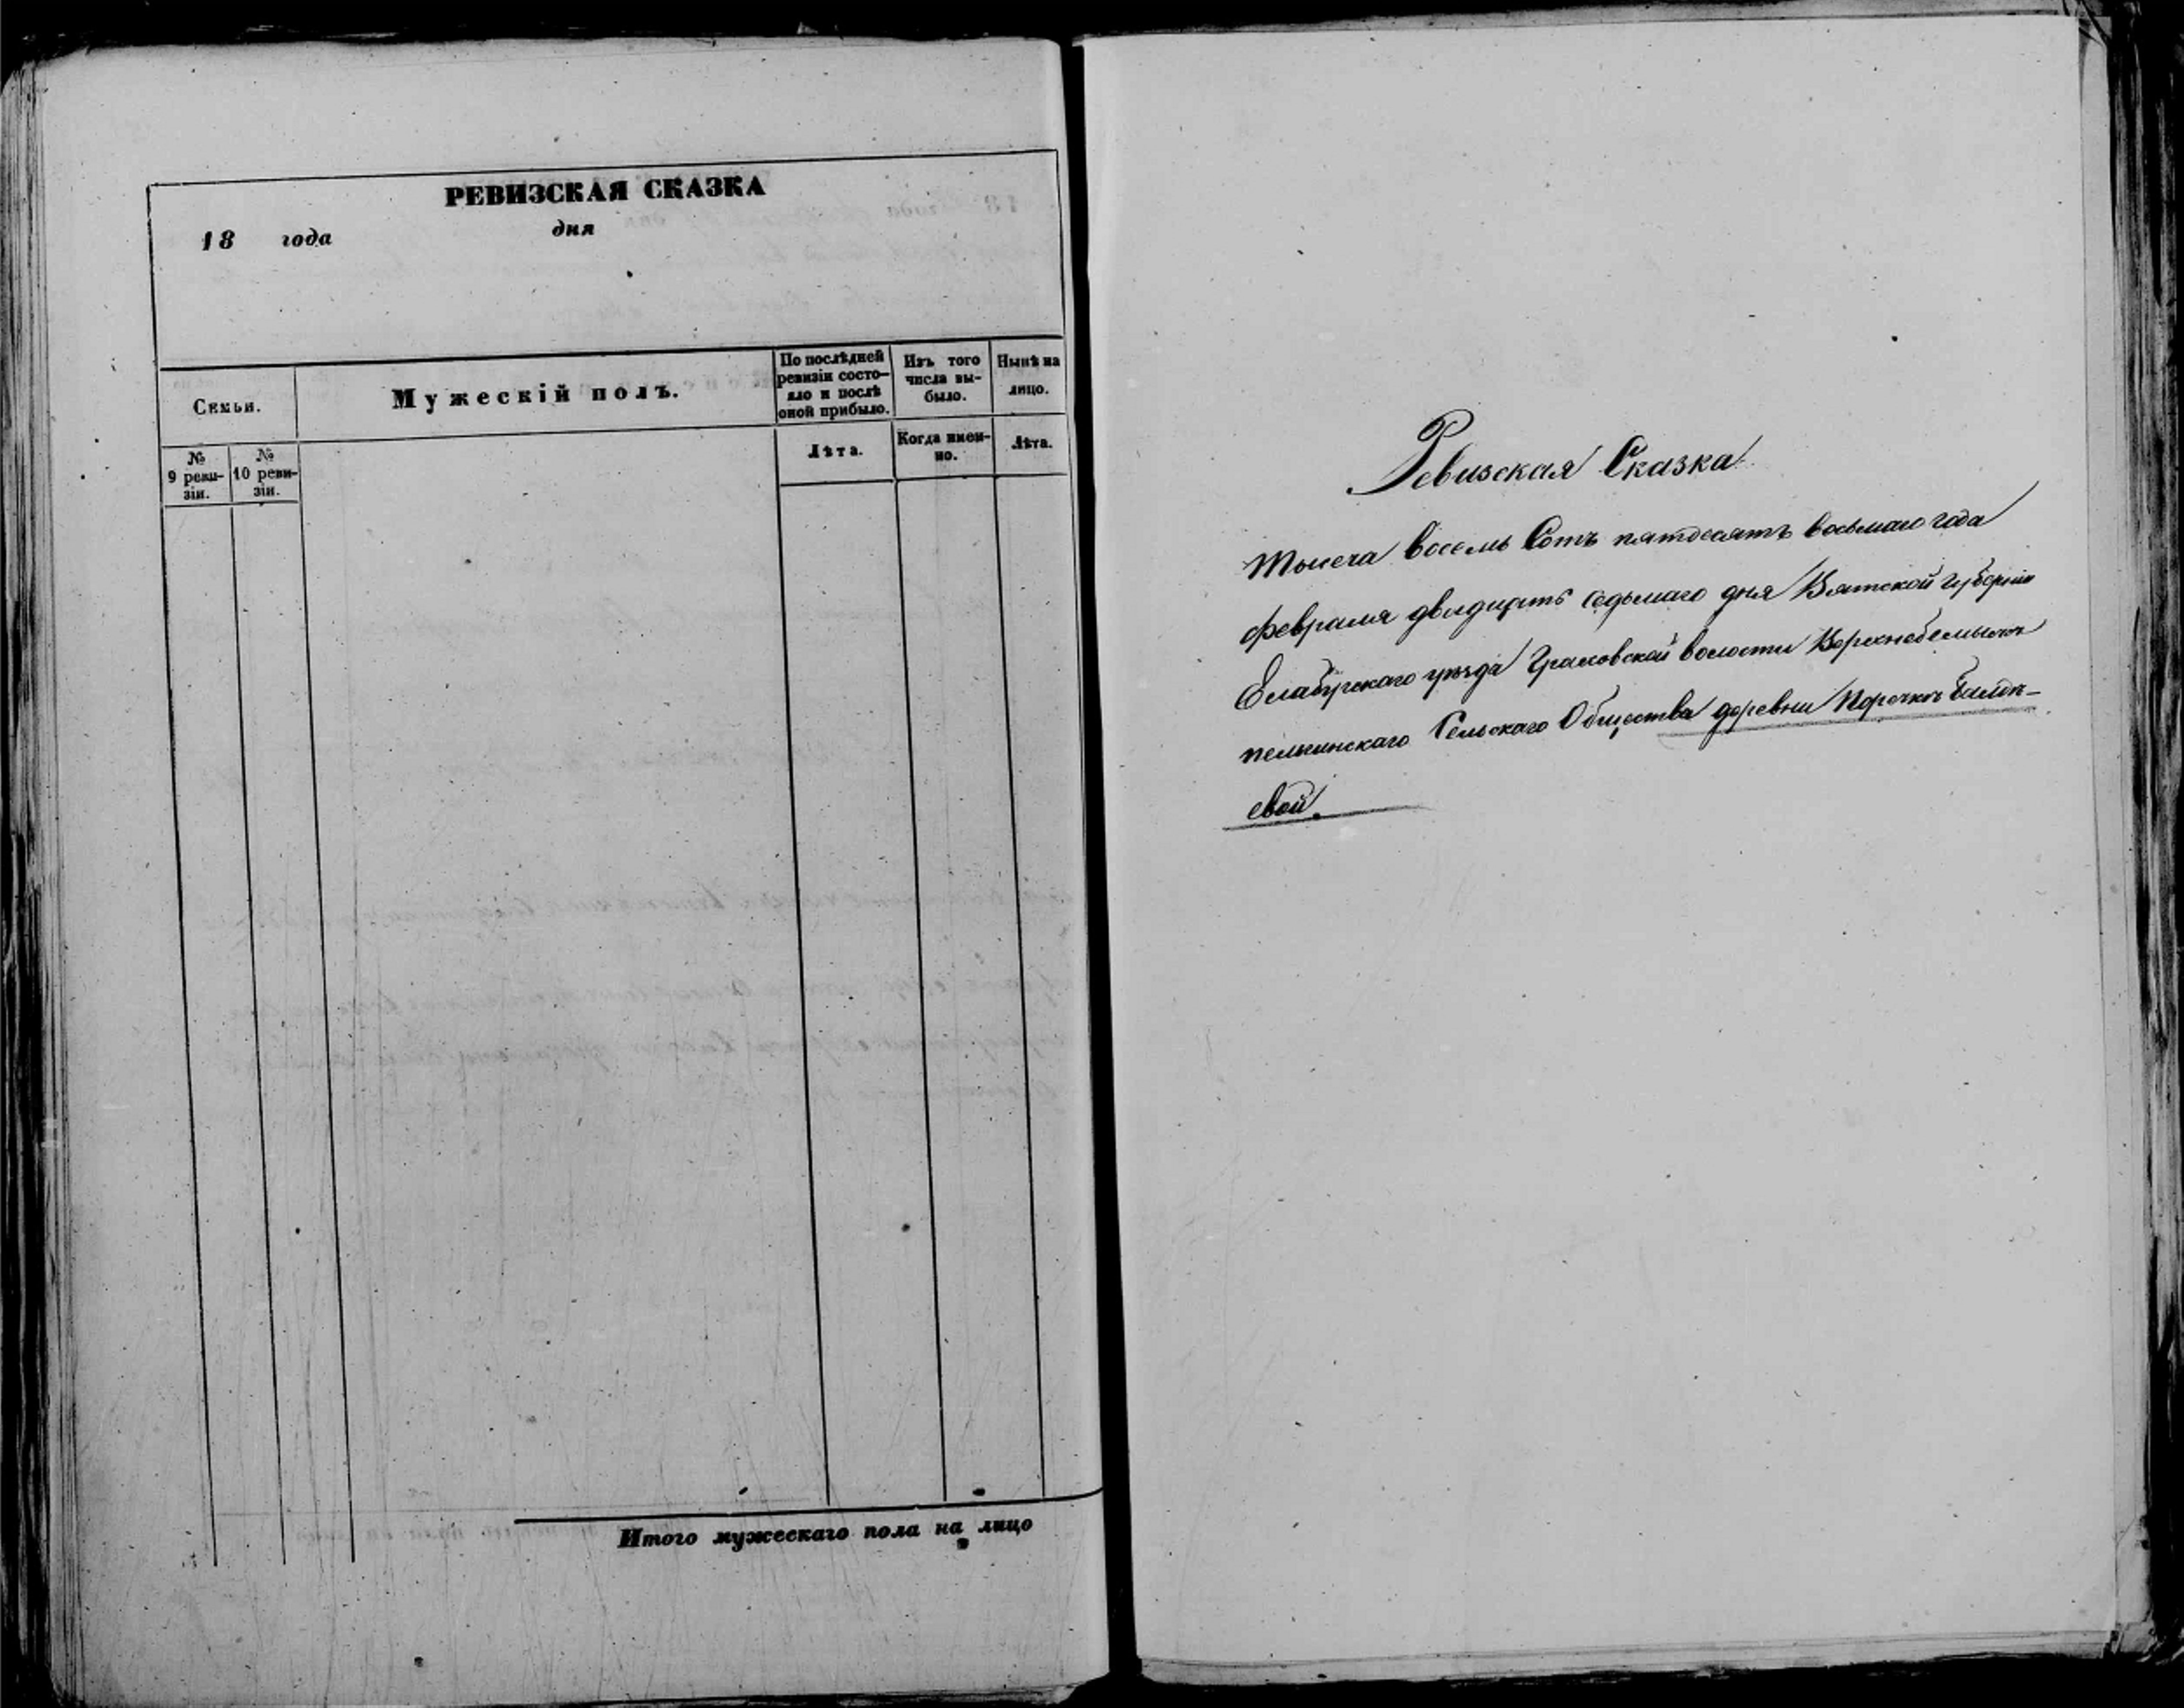 РЕВИЗСКАЯ СКАЗКА
18 года дня
Семьи.
Мужескій полъ.
По послѣдней ревизіи состо-
яло и послѣ
оной прибыло.
Изъ того
числа вы-
было.
Нынѣ на
лицо.
№
9 реви-
зіи.
№
10 реви-
зіи.
Лѣта.
Когда имен-
но.
Лѣта.
Итого мужескаго пола на лицо
Ревизская Сказка
Тысеча восемь Сотъ пятдесятъ восьмаго года
февраля двадцать седьмаго дня Вятской губерніи
Елабужскаго уѣзда Граховской волости
Сельскаго Общества деревни
евой.